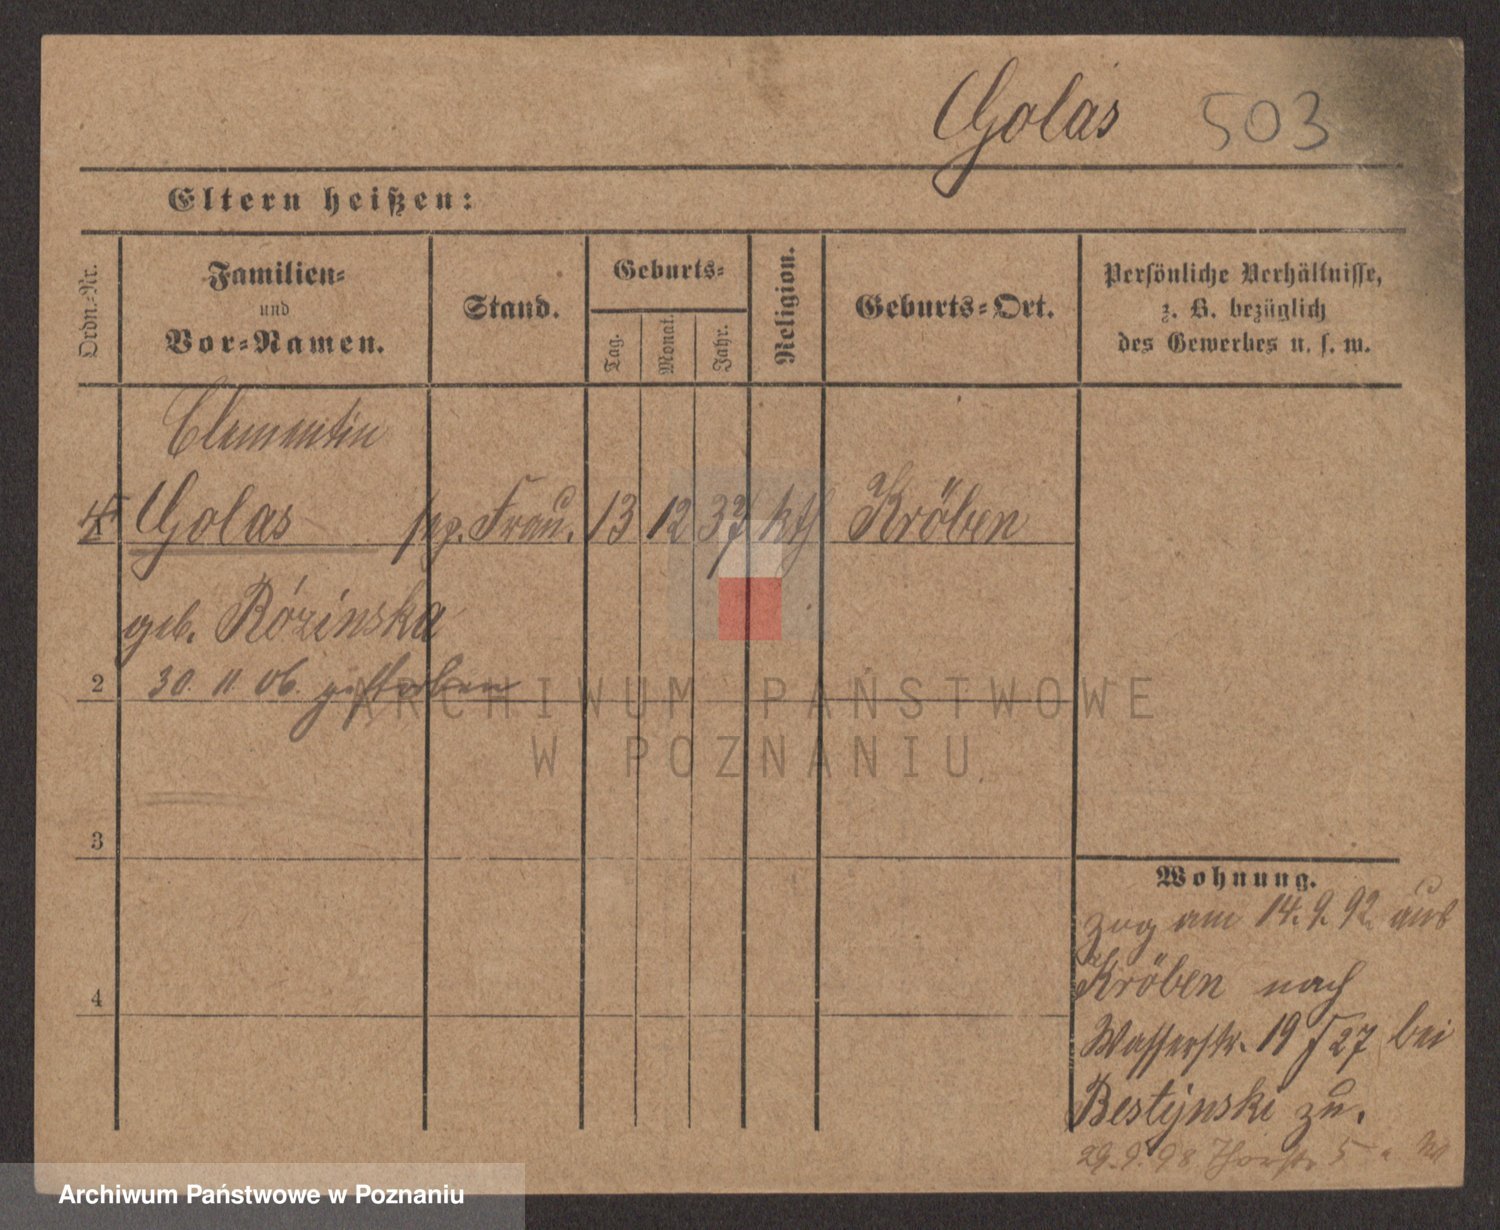 Golas 503
Eltern heißen:
Ordn.-Nr.
Familien-
und
Vor-Namen.
Stand.
Geburts-
Tag.
Monat.
Jahr.
Religion.
Geburts-Ort.
Persönliche Verhältnisse,
z. B. bezüglich
des Gewerbes u. s. w.
Clementin
Golas sep. Frau. 13 12 37 kth Kröben
geb. Rózinska
2 30. 11. 06. gestorben
3
4
Wohnung.
zog am 14. 9. 92 aus
Kröben nach
Wasserstr. 19 / 27 bei
Bestynski zu.
29. 9. 98 5
ARCHIWUM PAŃSTWOWE
W POZNANIU
Archiwum Państwowe w Poznaniu